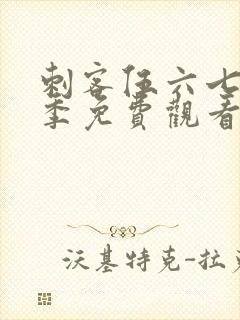 刺客伍六七
季免費觀看
沃基特克-拉